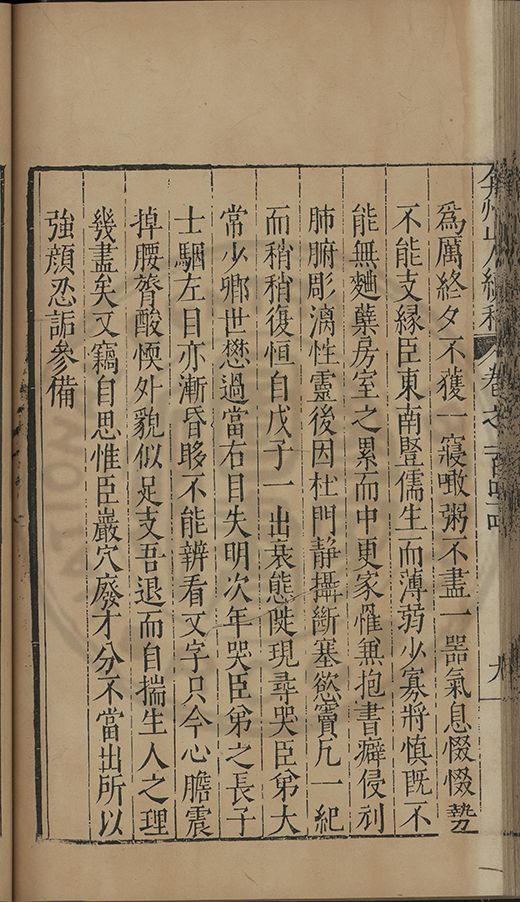 弇州山人續稿 卷之一百四 九
爲厲終夕不獲一寢噉粥不盡一器氣息惙惙勢
不能支緣臣東南豎儒生而薄弱少寡將慎既不
能無麯蘖房室之累而中更家罹兼抱書癖侵刓
肺腑彫漓性靈後因杜門靜攝斷塞慾竇凡一紀
而稍稍復恒自戊子一出衰態陡現尋哭臣弟大
常少卿世懋過當右目失明次年哭臣弟之長子
士駰左目亦漸昏眵不能辨看文字只今心膽震
掉腰膂酸愞外貌似足支吾退而自揣生人之理
幾盡矣又竊自思惟臣巖穴廢才分不當出所以
強顔忍詬參備